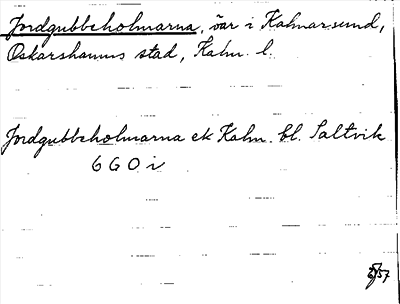 Jordgubbeholmarna, öar i Kalmarsund,
Oskarshamns stad, Kalm. l.
Jordgubbeholmarna ek Kalm. bl. Saltvik
6 G 0 i